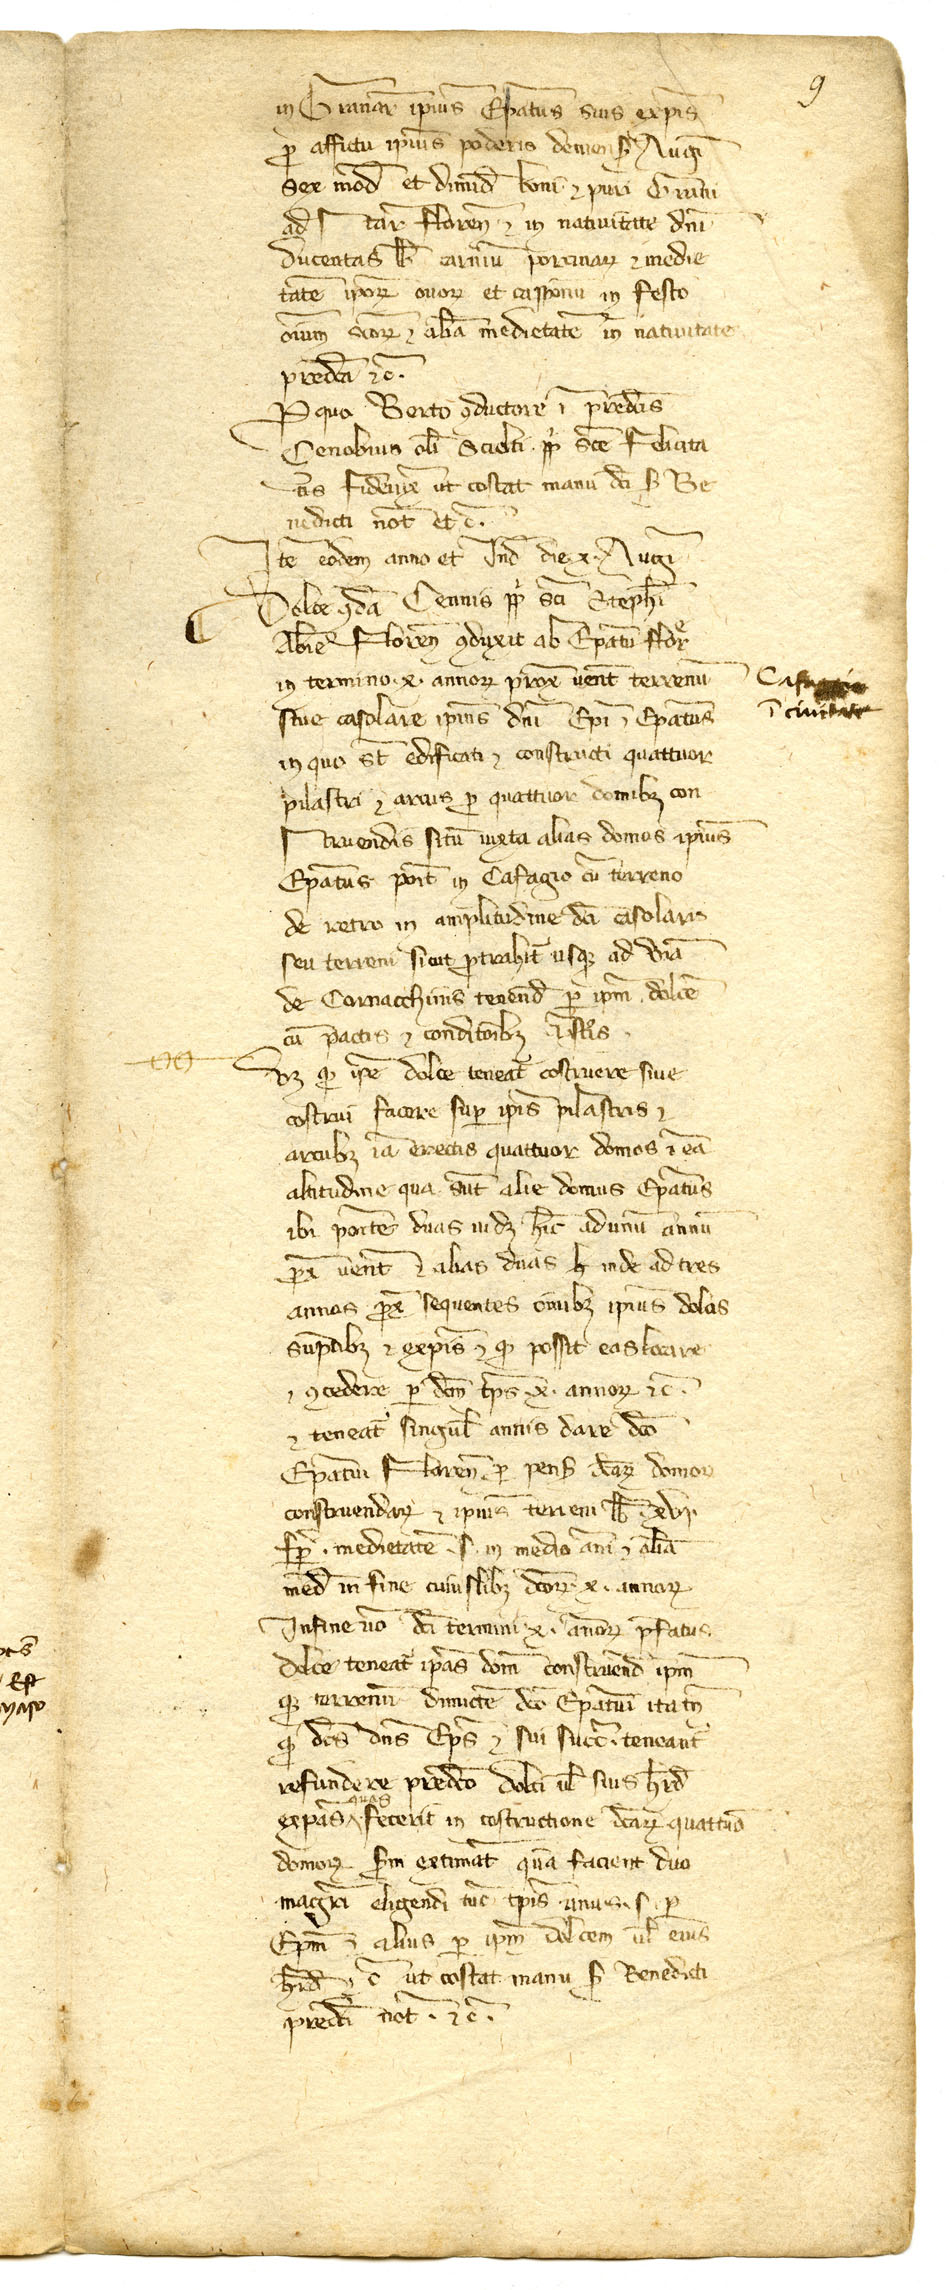 9
in Granar ipius Epatus suis expis
p affictu ipius poderis de mens Augi
sex mod et dimid boni et puri Grani
ad star Floren et in nativitate dni
ducentas lb carnium porcinar et medie
tate ipor ovor et caponu in festo
oium scor et alia medietate in nativitate
predca etc.
P quo Berto conductore i predcis
Cenobius oli Scielti pp sce Felicita
tis fideiux ut costat manu dci S Be
nedicti not et c.
Ite eodem anno et Ind die x. Augi
Dolce qda Cennis pp sci Stephi
Abie Floren conduxit ab Epatu Flor
in termino x. annor prox vent terrenu
sive casolare ipius dni Epi et Epatus
in quo st edificati et constructi quattuor
pilastri et arcus p quattuor domibz con
struendis situ iuxta alias domos ipius
Epatus poit in Cafagio cu terreno
de retro in amplitudine dci casolaris
seu terreni sicut ptrahit usq ad via
de Cornacchinis tenend p ipm dolce
cu pactis et conditoibz istis.
Vz q ipe dolce teneat costruere sive
costrui facere sup ipis pilastris et
arcubz ia erectis quattuor domos i ea
altitudine qua sut alie domus Epatus
ibi poite duas vidz hic ad unu annu
px vent et alias duas h inde ad tres
annos px sequentes oibz ipius dolcis
suptibz et expis et q possit eas locare
et concedere p dcm tps x. annor etc.
et teneat singul annis dare dco
Epatui Floren p pens dcar domor
construendar et ipius terreni lb xvi.
fp. medietate s. in medio ani et alia
med in fine cuiuslibz dcor x. annor
In fine vo dci termini x. anor pfatus
dolce teneat ipas dom construend ipm
q terrenu dimicte dco Epatui ita tn
q dcs dns Eps et sui succ. teneant
refundere predco dolci ul suis hrd
expas quas fecerit in costructione dcar quattuo
domor sm extimat qua facient duo
magri eligendi tuc tpis unus s. p
Epm et alius p ipm dolcem ul eius
hrd et c ut costat manu S Benedicti
predci not. etc.
Cafaggio
i civitate